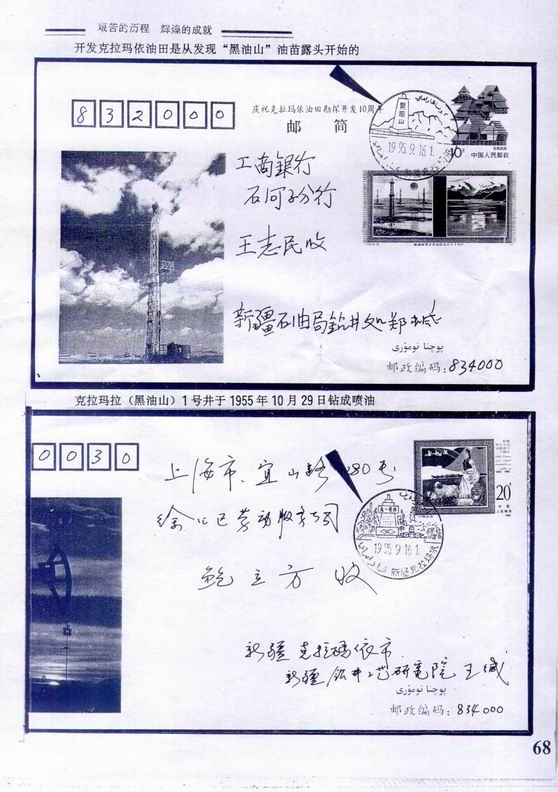 艰苦的历程 辉煌的成就
开发克拉玛依油田是从发现“黑油山”油苗露头开始的
832000
庆祝克拉玛依油田勘探开发40周年
邮 简
黑油山
1995.9.16.1
40分
中国人民邮政
工商银行
石河子分行
王志民收
新疆石油局钻井处郑
پوچتا نومۇرى
邮政编码：834000
克拉玛拉（黑油山）1号井于1955年10月29日钻成喷油
0030
20分
上海市、宜山路 280号
劳动服务公司
鲍立方 收
1995.9.16.1
新疆克拉玛依
新疆克拉玛依市
新疆钻井工艺研究院 王
پوچتا نومۇرى
邮政编码：834000
68